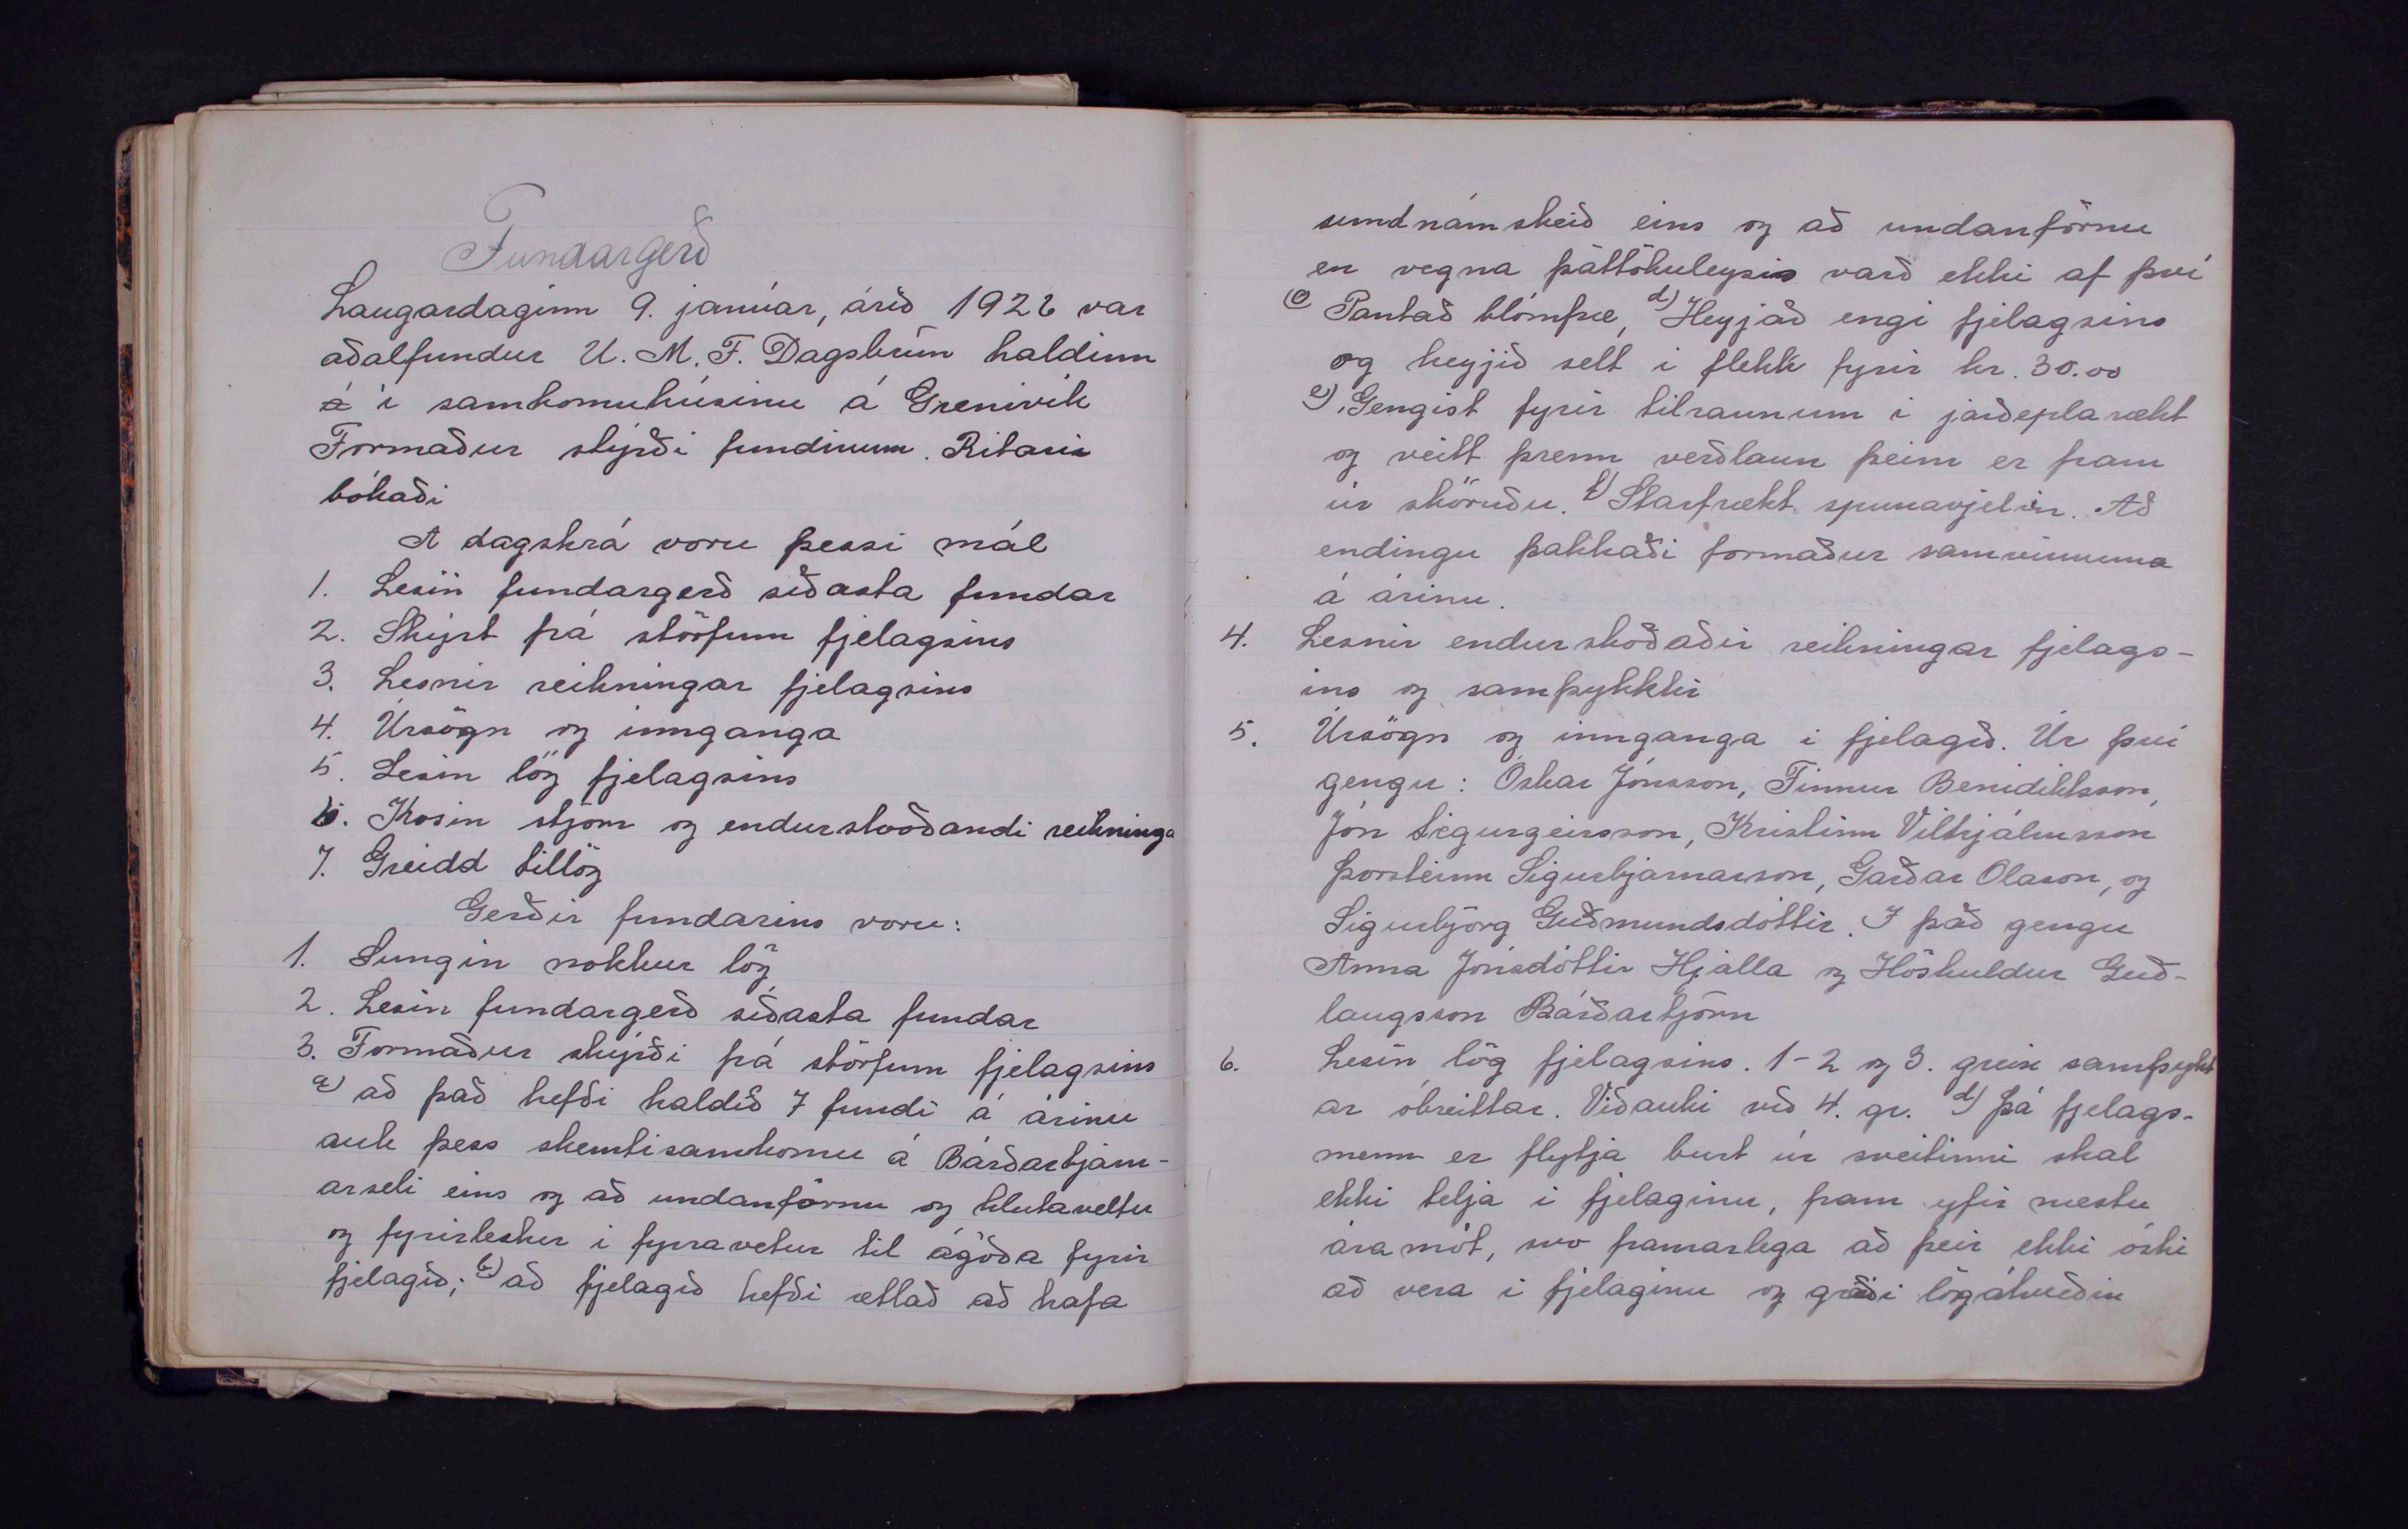 Fundargerð
Laugardaginn 9. janúar, árið 1926 var
aðalfundur U. M. F. Dagsbrún haldinn
á í samkomuhúsinu á Grenivík
Formaður stýrði fundinum. Ritari
bókaði
A dagskrá voru þessi mál
1. Lesin fundargerð síðasta fundar
2. Skýrt frá störfum fjelagsins
3. Lesnir reikningar fjelagsins
4. Úrsögn og innganga
5. Lesin lög fjelagsins
6. Kosin stjórn og endurskoðandi reikninga
7. Greidd tillög
Gerðir fundarins voru:
1. Sungin nokkur lög
2. Lesin fundargerð síðasta fundar
3. Formaður skýrði frá störfum fjelagsins
a) að það hefði haldið 7 fundi á árinu
auk þess skemtisamkomu á Bárðartjarn-
arseli eins og að undanförnu og hlutaveltu
og fyrirlestur í fyrravetur til ágóða fyrir
fjelagið; b) að fjelagið hefði ætlað að hafa
sundnámskeið eins og að undanförnu
en vegna þáttökuleysis varð ekki af því
c) Pantað blómfræ, d) Heyjað engi fjelagsins
og heyjið selt í flekk fyrir kr. 30.00
e) Gengist fyrir tilraunum í jarðeplarækt
og veitt þrenn verðlaun þeim er fram
úr sköruðu. f) Starfrækt spunavjelin. Að
endingu þakkaði formaður samvinnuna
á árinu.
4. Lesnir endurskoðaðir reikningar fjelags-
ins og samþykktir
5. Úrsögn og innganga í fjelagið. Úr því
gengu: Óskar Jónsson, Finnur Benidiktsson,
Jón Sigurgeirsson, Kristinn Vilhjálmsson
Þorsteinn Sigurbjarnarson, Garðar Olason, og
Sigurbjörg Guðmundsdóttir. I það gengu
Anna Jónsdóttir Hjalla og Höskuldur Guð-
laugsson Bárðartjörn
6. Lesin lög fjelagsins. 1-2 og 3. grein samþykt
ar óbreittar. Viðauki við 4. gr. d) Þá fjelags-
menn er flytja burt úr sveitinni skal
ekki telja í fjelaginu, fram yfir næstu
áramót, svo framarlega að þeir ekki óski
að vera í fjelaginu og greiði lögákveðin